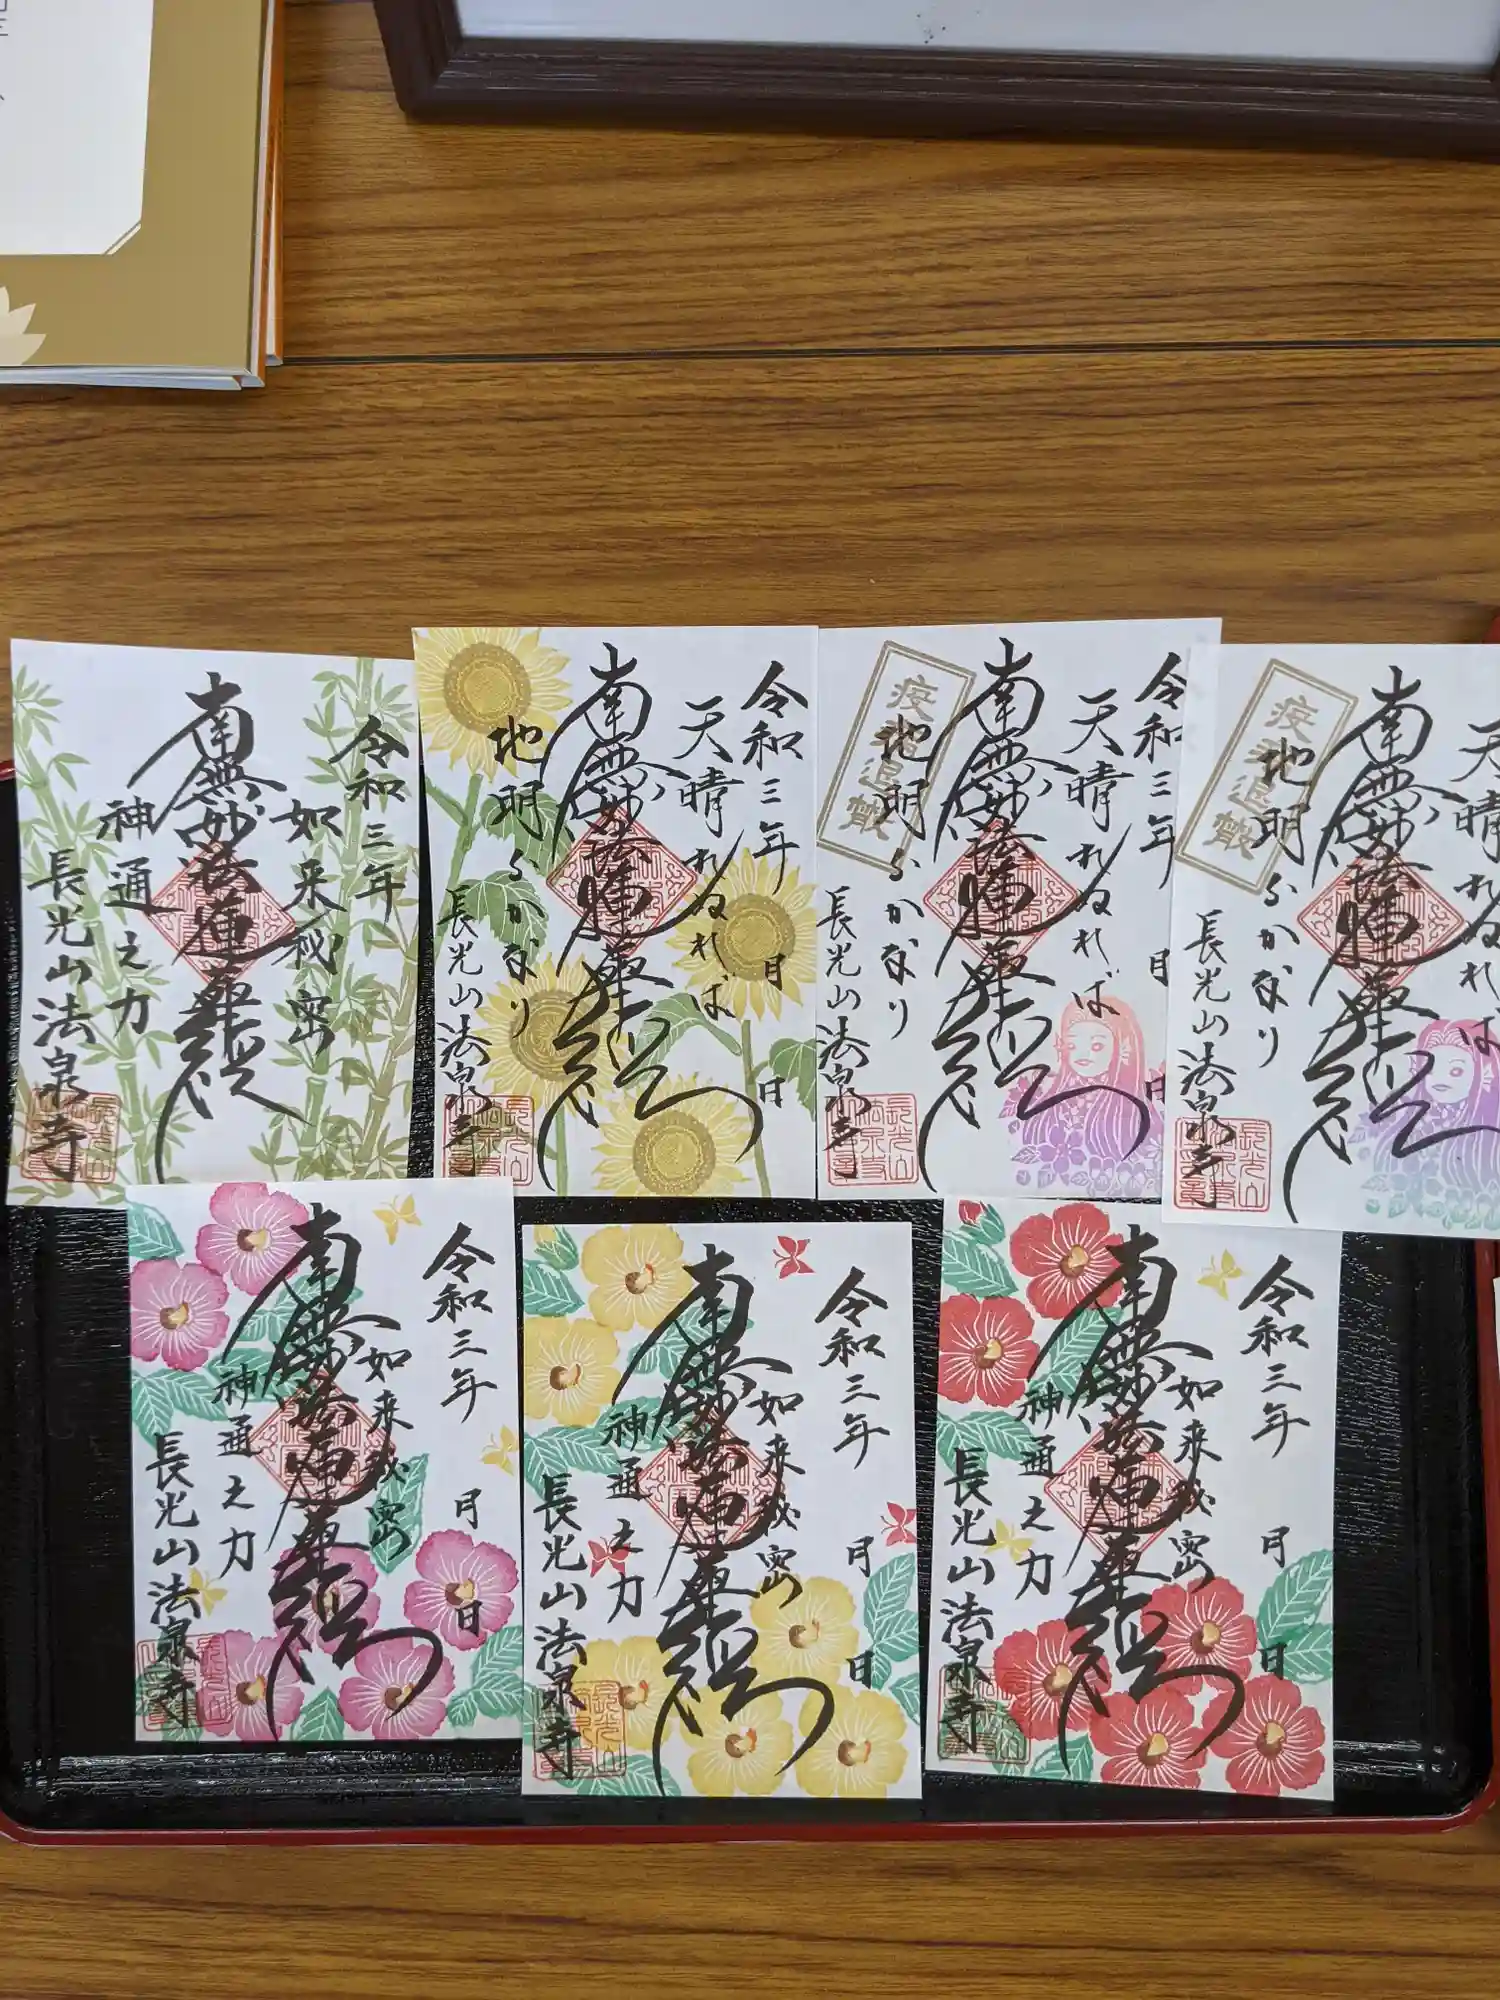 令和三年
如来秘密
南無妙法蓮華経
神通之力
長光山法泉寺
令和三年 月 日
天晴れぬれば
南無妙法蓮華経
地明らかなり
長光山法泉寺
令和三年 月 日
天晴れぬれば
南無妙法蓮華経
地明らかなり
疫病退散
長光山法泉寺
天晴れぬれば
南無妙法蓮華経
地明らかなり
疫病退散
長光山法泉寺
令和三年 月 日
如来秘密
南無妙法蓮華経
神通之力
長光山法泉寺
令和三年 月 日
如来秘密
南無妙法蓮華経
神通之力
長光山法泉寺
令和三年 月 日
如来秘密
南無妙法蓮華経
神通之力
長光山法泉寺